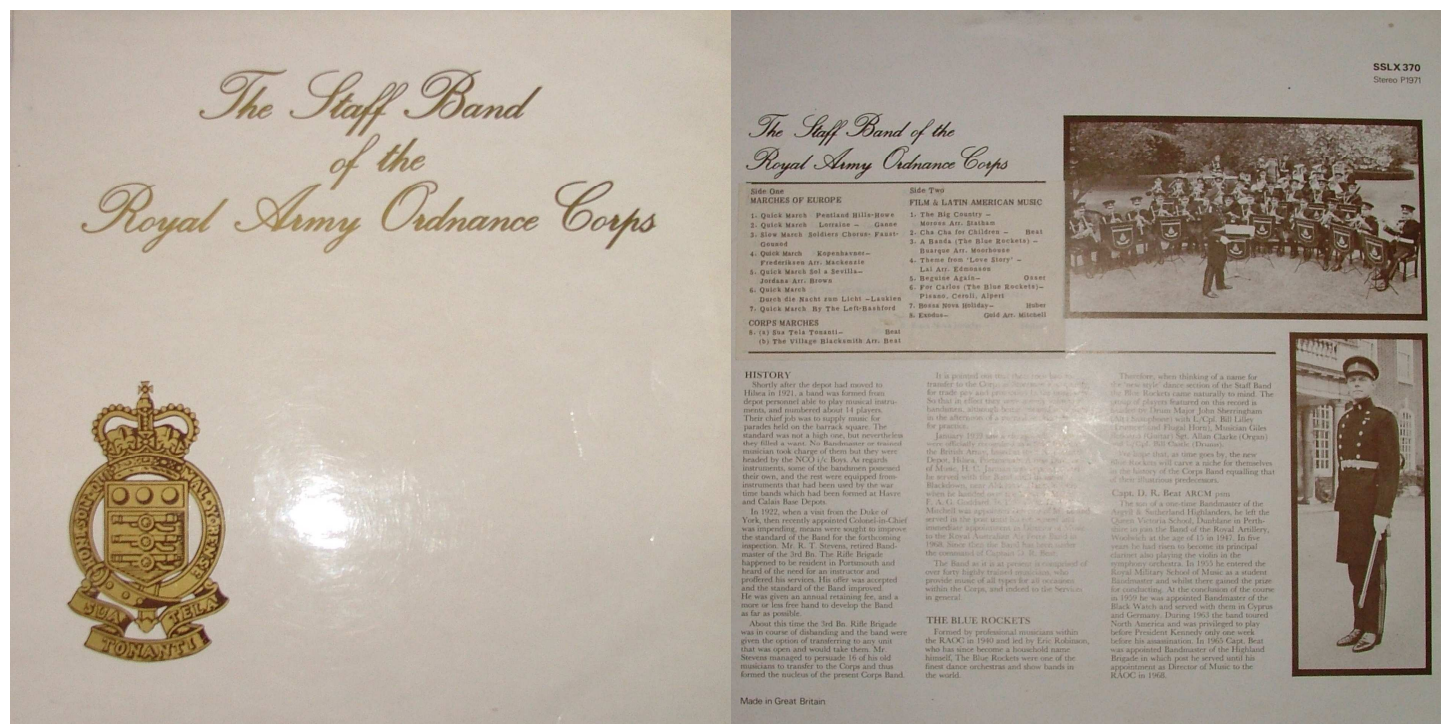 The Staff Band
of the
Royal Army Ordnance Corps
HONI SOIT QUI MAL Y PENSE
SUA TELA
TONANTI
SSLX 370
Stereo P1971
The Staff Band of the
Royal Army Ordnance Corps
Side One
MARCHES OF EUROPE
1. Quick March Pentland Hills-Howe
2. Quick March Lorraine — Ganne
3. Slow March Soldiers Chorus- Faust-
Gounod
4. Quick March Kopenhavner—
Frederiksen Arr. Mackenzie
5. Quick March Sol a Sevilla—
Jordana Arr. Brown
6. Quick March
Durch die Nacht zum Licht —Laukien
7. Quick March By The Left-Bashford
CORPS MARCHES
8. (a) Sua Tela Tonanti— Beat
(b) The Village Blacksmith Arr. Beat
Side Two
FILM & LATIN AMERICAN MUSIC
1. The Big Country —
Moross Arr. Statham
2. Cha Cha for Children — Beat
3. A Banda (The Blue Rockets) —
Buarque Arr. Moorhouse
4. Theme from 'Love Story' —
Lai Arr. Edmonson
5. Beguine Again— Osser
6. For Carlos (The Blue Rockets)—
Pisano, Ceroli, Alpert
7. Bossa Nova Holiday— Huber
8. Exodus— Gold Arr. Mitchell
HISTORY
Shortly after the depot had moved to
Hilsea in 1921, a band was formed from
depot personnel able to play musical instru-
ments, and numbered about 14 players.
Their chief job was to supply music for
parades held on the barrack square. The
standard was not a high one, but nevertheless
they filled a want. No Bandmaster or trained
musician took charge of them but they were
headed by the NCO i/c Boys. As regards
instruments, some of the bandsmen possessed
their own, and the rest were equipped from
instruments that had been used by the war
time bands which had been formed at Havre
and Calais Base Depots.
In 1922, when a visit from the Duke of
York, then recently appointed Colonel-in-Chief
was impending, means were sought to improve
the standard of the Band for the forthcoming
inspection. Mr. R. T. Stevens, retired Band-
master of the 2nd Bn. The Rifle Brigade
happened to be resident in Portsmouth and
heard of the need for an instructor and
proffered his services. His offer was accepted
and the standard of the Band improved.
He was given an annual retaining fee, and a
more or less free hand to develop the Band
as far as possible.
About this time the 3rd Bn. Rifle Brigade
was in course of disbanding and the band were
given the option of transferring to any unit
that was open and would take them. Mr
Stevens managed to persuade 16 of his old
musicians to transfer to the Corps and thus
formed the nucleus of the present Corps Band.
It is pointed out that
transfer to the Corps
for trade pay and
So that in effect they were
bandsmen,
in the afternoon
for practice.
January 1938
were officially
the British Army,
Depot, Hilsea,
of Music, H. C.
he served with the Band
Blackdown, near
when he handed over
F. A. G.
Mitchell was appointed
served in the post
immediate
to the Royal Australian Air Force Band in
1968. Since then the band has been under
the command of Captain D. R. Beat.
The Band as it is at present is comprised of
over forty highly trained musicians, who
provide music of all types for all occasions
within the Corps, and indeed to the Services
in general.
THE BLUE ROCKETS
Formed by professional musicians within
the RAOC in 1940 and led by Eric Robinson,
who has since become a household name
himself, The Blue Rockets were one of the
finest dance orchestras and show bands in
the world.
Therefore, when thinking of a name for
the 'new style' dance section of the Staff Band
the Blue Rockets came naturally to mind. The
group of players featured on this record is
Drum Major John Sherringham
with L/Cpl. Bill Lilley
and Flugal Horn), Musician Giles
(Guitar) Sgt. Allan Clarks (Organ)
L/Cpl. Bill (Drums).
We hope that, as time goes by, the new
Blue Rockets will carve a niche for themselves
in the history of the Corps Band equalling that
of their illustrious predecessors.
Capt. D. R. Beat ARCM psm
The son of a one-time Bandmaster of the
Argyll & Sutherland Highlanders, he left the
Queen Victoria School, Dunblane in Perth-
shire to join the Band of the Royal Artillery,
Woolwich at the age of 15 in 1947. In five
years he had risen to become its principal
clarinet also playing the violin in the
symphony orchestra. In 1955 he entered the
Royal Military School of Music as a student
Bandmaster and whilst there gained the prize
for conducting. At the conclusion of the course
in 1959 he was appointed Bandmaster of the
Black Watch and served with them in Cyprus
and Germany. During 1963 the band toured
North America and was privileged to play
before President Kennedy only one week
before his assasination. In 1965 Capt. Beat
was appointed Bandmaster of the Highland
Brigade in which post he served until his
appointment as Director of Music to the
RAOC in 1968.
Made in Great Britain